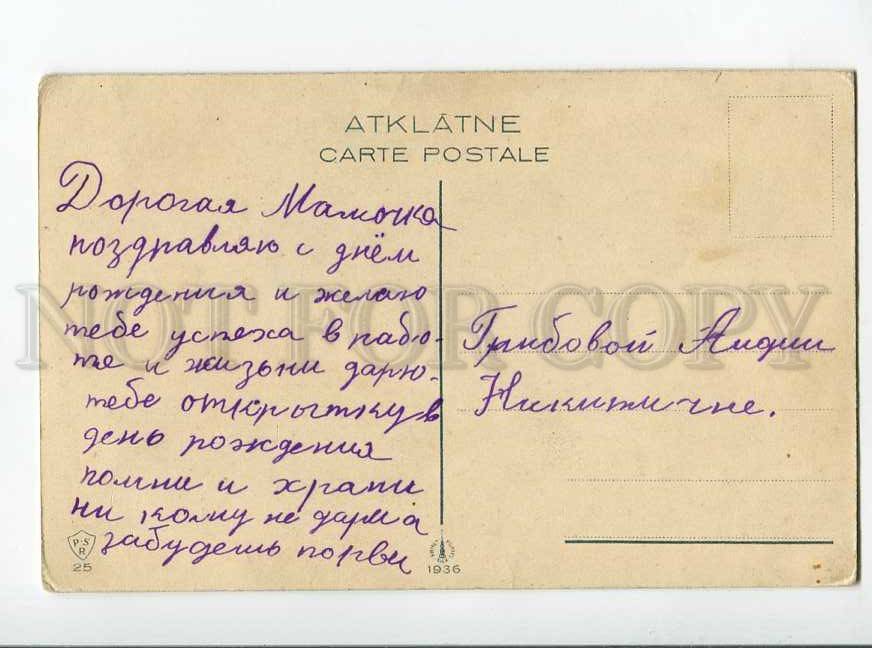 ATKLĀTNE
CARTE POSTALE
Дорогая Мамочка
поздравляю с днём
рождения и желаю
тебе успеха в рабо-
те и жизни дарю
тебе открытку в
день рождения
помни и храни
ни кому не дари а
забудешь порви
Грибовой Лидии
Никитичне.
P.S
R
25
1936
NOT FOR COPY